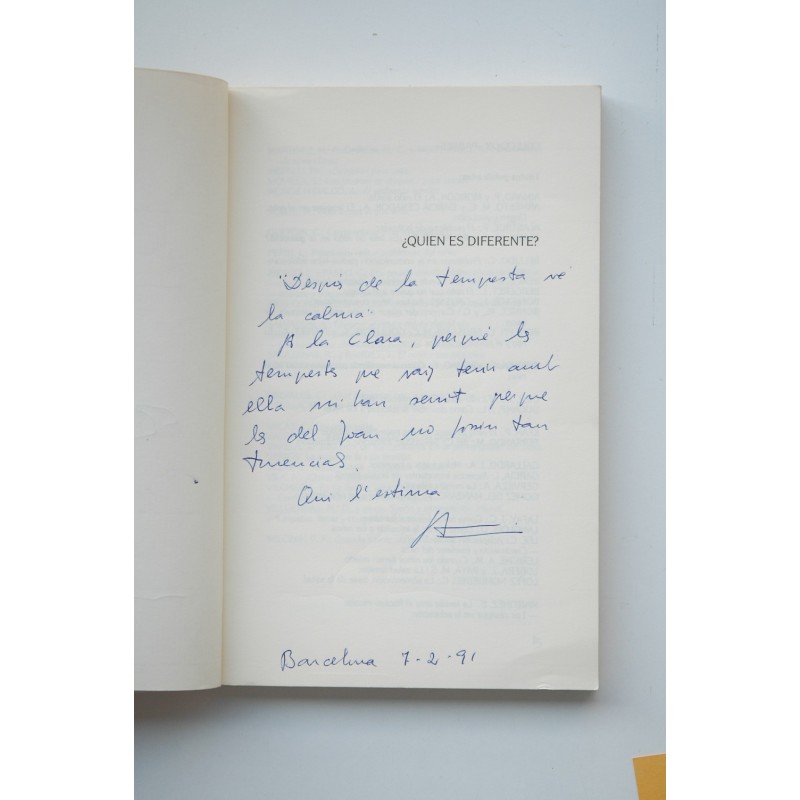 ¿QUIEN ES DIFERENTE?
"Desprès de la tempesta ve
la calma"
A la Clara, perquè les
tempestes que vaig tenir amb
ella m'han servit perque
les del Joan no fossin tan
Qui l'estima
Barcelona 7-2-91